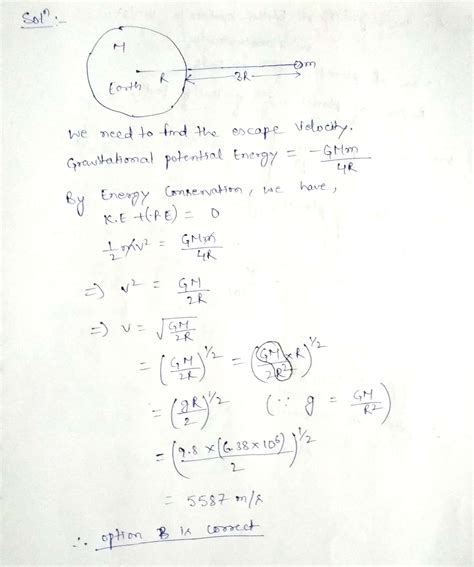 Solⁿ :-
M
Earth R 3R m
We need to find the escape velocity.
Gravitational potential Energy = -GMm/4R
By Energy Conservation, we have,
K.E + (-P.E) = 0
1/2 mv² = GMm/4R
⇒ v² = GM/2R
⇒ v = √(GM/2R)
= (GM/2R)^1/2 = (GM/2R² × R)^1/2
= (gR/2)^1/2 (∵ g = GM/R²)
= (9.8 × (6.38 × 10⁶)/2)^1/2
= 5587 m/s
∴ option B is correct